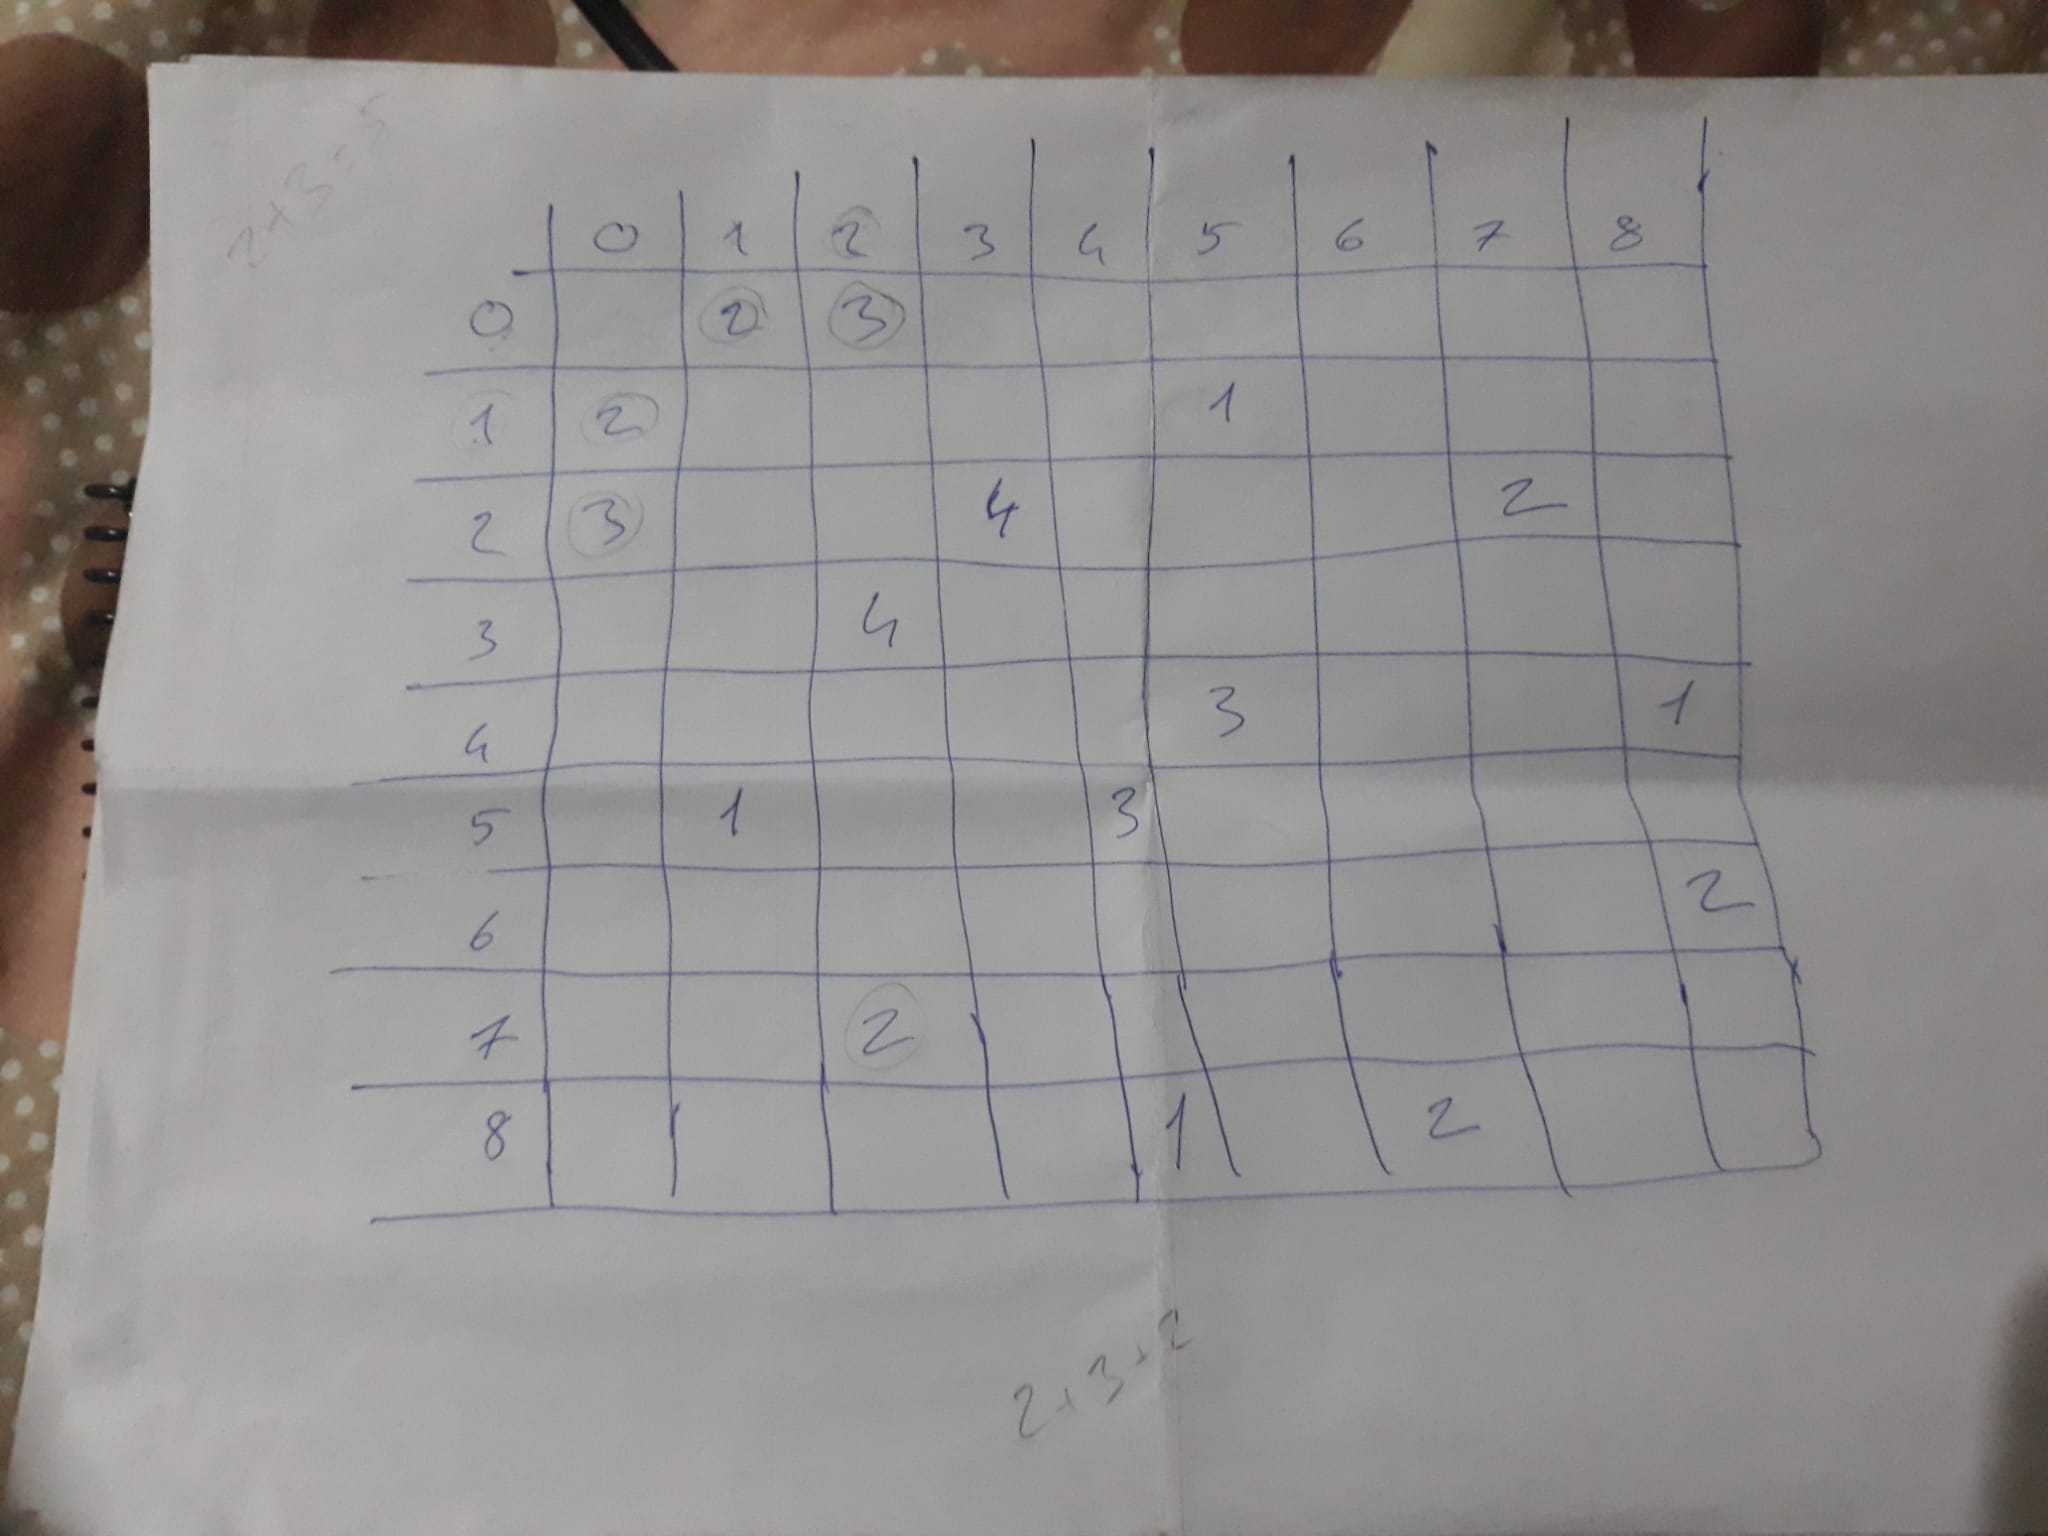 2+3=5
0 1 2 3 4 5 6 7 8
0 2 3
1 2 1
2 3 4 2
3 4
4 3 1
5 1 3
6 2
7 2
8 1 2
2+3+2